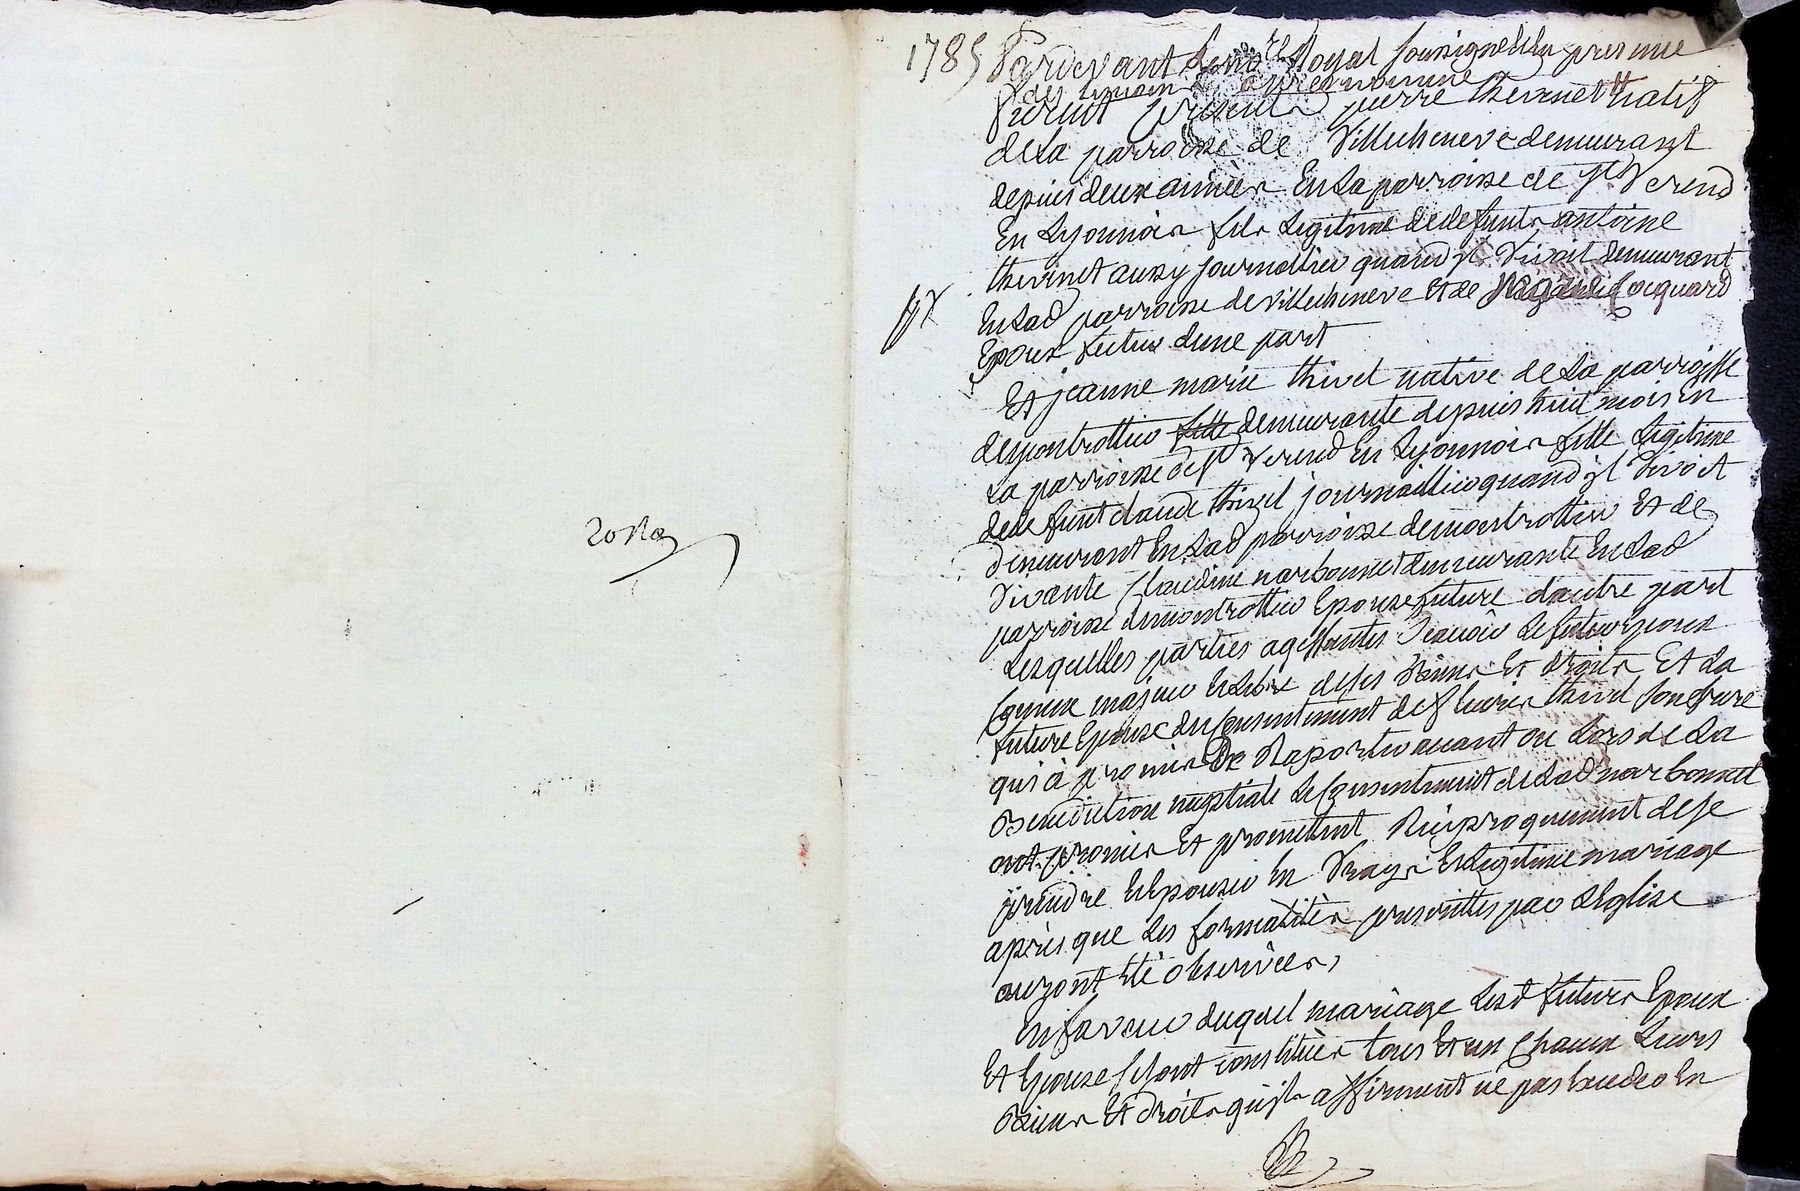 20 Ro
1785 Pardevant Le no.re Royal soussigné Et En presence
des temoins apres nommes
furent presents pierre thevenet natif
dela parroisse de Villecheneve demeurant
depuis deux années En La parroisse de st Verend
En Lyonnois fils Legitime de defunts antoine
thevenet aussy journallier quand jl Vivoit demeurant
En Lad parroisse de villecheneve Et de Coquard
Epoux futur dune part
Et jeanne marie thivel native de La parroisse
de montrottier fille demeurante depuis huit mois En
La parroisse de st Verend En Lyonnois fille Legitime
de defunt claude thivel journaillier quand jl Vivoit
demeurant En Lad parroisse de montrottier Et de
Vivante Claudine narbonnet demeurante En Lad
parroisse de montrottier Epouse future d'autre part
Lesquelles parties agissantes Scavoir Le futur Epoux
Comme majeur Et Libre de ses Biens Et droits Et La
future Epouse du Consentement de fleurie thivel son frere
qui à promis De Raporter avant ou Lors de La
Benediction nuptiale Le Consentement de Lad narbonnet
ont promis Et promettent Reciproquement de se
prendre Et Epouser En Vray Et Legitime mariage
après que Les formalités prescrittes par L'Eglise
auront Eté observées,
En faveur duquel mariage Lesd futurs Epoux
Et Epouse se sont constitués tous Et un Chacun Leurs
Biens Et droits qu'jls affirment ne pas Exceder En